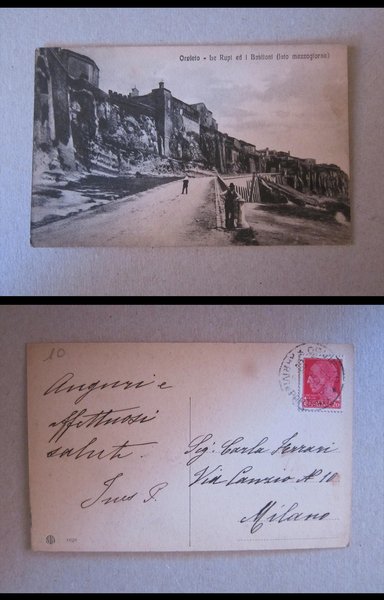 Orvieto - Le Rupi ed i Bastioni (lato mezzogiorno)
10
Auguri e
affettuosi
saluti.
Ines P.
Sig. Carla Ferrari
Via Canzio N 10
Milano